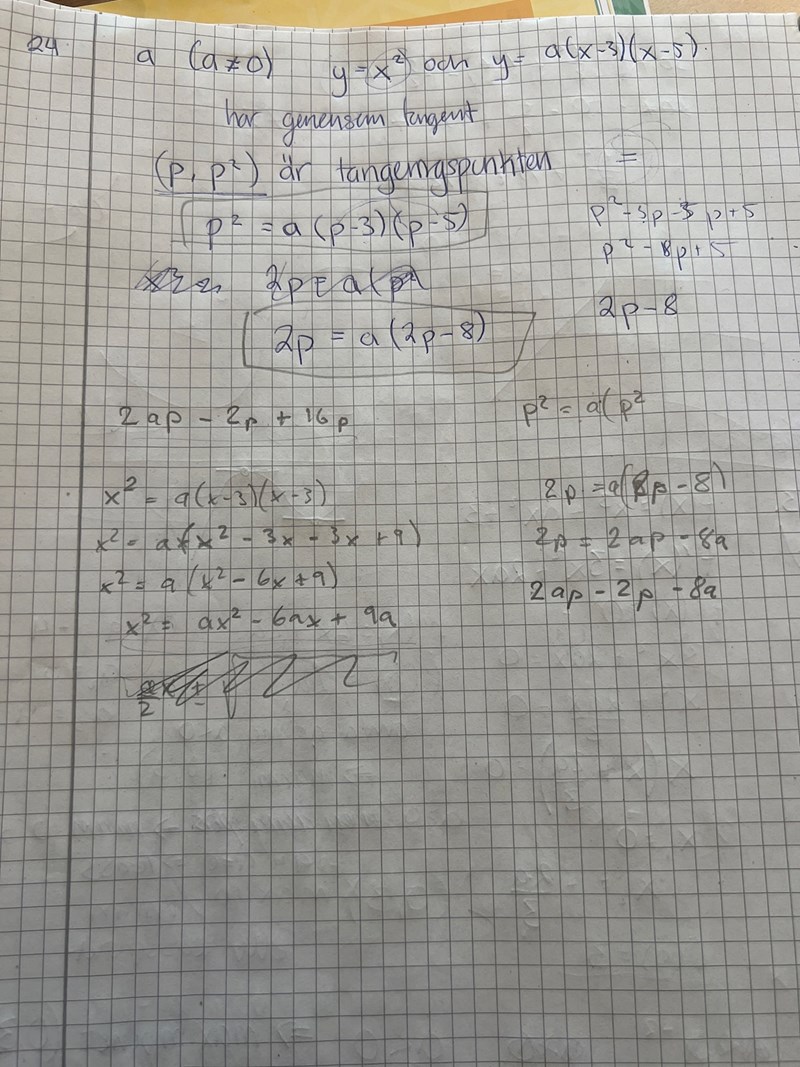 24. a (a≠0) y = x² och y = a(x-3)(x-5).
har gemensam tangent
(p, p²) är tangeringspunkten =
p² = a(p-3)(p-5)
p²-5p-3p+5
p²-8p+5
2p = a(p²
2p-8
2p = a(2p-8)
2ap - 2p + 16p
p² = a(p²
x² = a(x-3)(x-3)
x² = a(x² - 3x - 3x + 9)
x² = a(x² - 6x + 9)
x² = ax² - 6ax + 9a
2p = a(2p - 8)
2p = 2ap - 8a
2ap - 2p - 8a